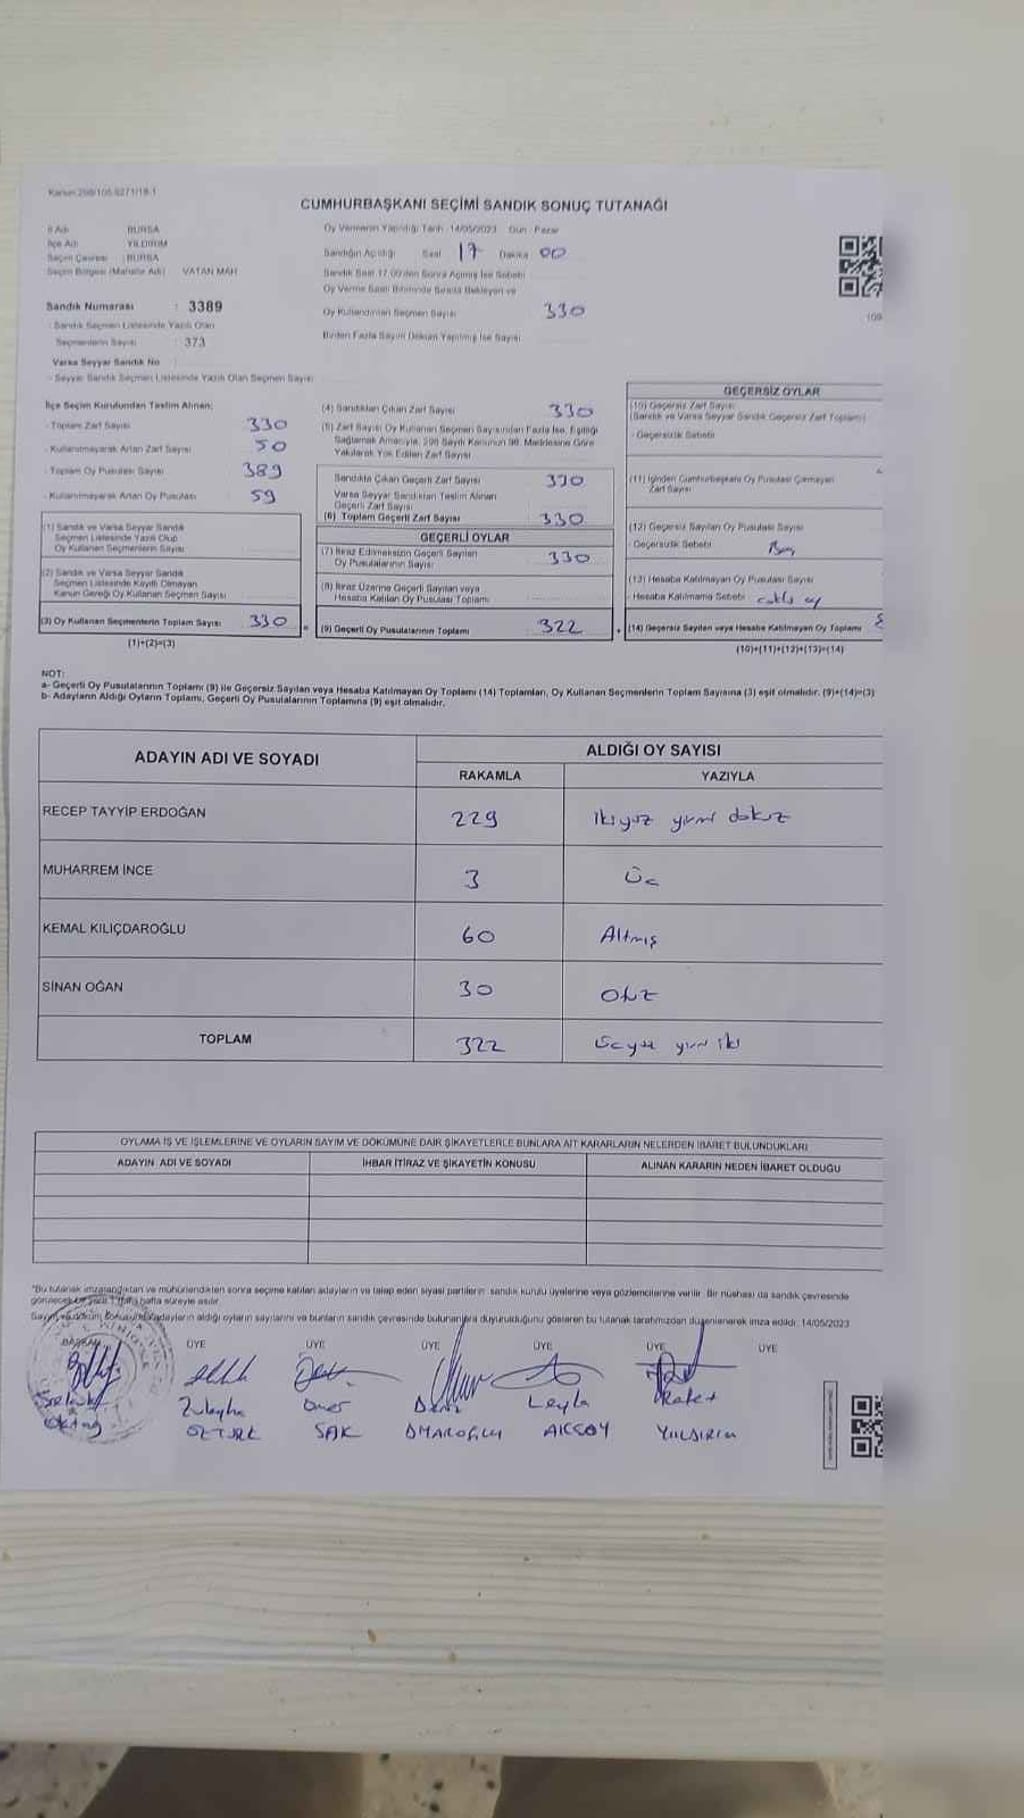 Kanun:298/105.6271/18-1
CUMHURBAŞKANI SEÇİMİ SANDIK SONUÇ TUTANAĞI
İl Adı BURSA
İlçe Adı YILDIRIM
Seçim Çevresi : BURSA
Seçim Bölgesi (Mahalle Adı) VATAN MAH
Sandık Numarası : 3389
- Sandık Seçmen Listesinde Yazılı Olan
Seçmenlerin Sayısı : 373
Varsa Seyyar Sandık No
- Seyyar Sandık Seçmen Listesinde Yazılı Olan Seçmen Sayısı
Oy Vermenin Yapıldığı Tarih :14/05/2023 Gün : Pazar
Sandığın Açıldığı Saat 17 Dakika 00
Sandık Saat 17.00'den Sonra Açılmış İse Sebebi
Oy Verme Saati Bitiminde Sırada Bekleyen ve
Oy Kullandırılan Seçmen Sayısı 330
Birden Fazla Sayım Döküm Yapılmış İse Sayısı
109
İlçe Seçim Kurulundan Teslim Alınan;
- Toplam Zarf Sayısı 330
- Kullanılmayarak Artan Zarf Sayısı 50
- Toplam Oy Pusulası Sayısı 389
- Kullanılmayarak Artan Oy Pusulası 59
(1) Sandık ve Varsa Seyyar Sandık
Seçmen Listesinde Yazılı Olup
Oy Kullanan Seçmenlerin Sayısı
(2) Sandık ve Varsa Seyyar Sandık
Seçmen Listesinde Kayıtlı Olmayan
Kanun Gereği Oy Kullanan Seçmen Sayısı
(3) Oy Kullanan Seçmenlerin Toplam Sayısı 330
(1)+(2)=(3)
(4) Sandıktan Çıkan Zarf Sayısı 330
(5) Zarf Sayısı Oy Kullanan Seçmen Sayısından Fazla İse, Eşitliği
Sağlamak Amacıyla, 298 Sayılı Kanunun 98. Maddesine Göre
Yakılarak Yok Edilen Zarf Sayısı
Sandıkta Çıkan Geçerli Zarf Sayısı 330
Varsa Seyyar Sandıktan Teslim Alınan
Geçerli Zarf Sayısı
(6) Toplam Geçerli Zarf Sayısı 330
GEÇERLİ OYLAR
(7) İtiraz Edilmeksizin Geçerli Sayılan
Oy Pusulalarının Sayısı 330
(8) İtiraz Üzerine Geçerli Sayılan veya
Hesaba Katılan Oy Pusulası Toplamı
= (9) Geçerli Oy Pusulalarının Toplamı 322
GEÇERSİZ OYLAR
(10) Geçersiz Zarf Sayısı
(Sandık ve Varsa Seyyar Sandık Geçersiz Zarf Toplamı)
- Geçersizlik Sebebi
(11) İçinden Cumhurbaşkanı Oy Pusulası Çıkmayan
Zarf Sayısı
(12) Geçersiz Sayılan Oy Pusulası Sayısı
- Geçersizlik Sebebi
(13) Hesaba Katılmayan Oy Pusulası Sayısı
- Hesaba Katılmama Sebebi oy
+ (14) Geçersiz Sayılan veya Hesaba Katılmayan Oy Toplamı
(10)+(11)+(12)+(13)=(14)
NOT:
a- Geçerli Oy Pusulalarının Toplamı (9) ile Geçersiz Sayılan veya Hesaba Katılmayan Oy Toplamı (14) Toplamları, Oy Kullanan Seçmenlerin Toplam Sayısına (3) eşit olmalıdır. (9)+(14)=(3)
b- Adayların Aldığı Oyların Toplamı, Geçerli Oy Pusulalarının Toplamına (9) eşit olmalıdır.
ADAYIN ADI VE SOYADI
ALDIĞI OY SAYISI
RAKAMLA YAZIYLA
RECEP TAYYİP ERDOĞAN 229 ikiyüz yirmi dokuz
MUHARREM İNCE 3 Üç
KEMAL KILIÇDAROĞLU 60 Altmış
SİNAN OĞAN 30 Otuz
TOPLAM 322 Üçyüz yirmi iki
OYLAMA İŞ VE İŞLEMLERİNE VE OYLARIN SAYIM VE DÖKÜMÜNE DAİR ŞİKAYETLERLE BUNLARA AİT KARARLARIN NELERDEN İBARET BULUNDUKLARI
ADAYIN ADI VE SOYADI İHBAR İTİRAZ VE ŞİKAYETİN KONUSU ALINAN KARARIN NEDEN İBARET OLDUĞU
"Bu tutanak imzalandıktan ve mühürlendikten sonra seçime katılan adayların ve talep eden siyasi partilerin sandık kurulu üyelerine veya gözlemcilerine verilir. Bir nüshası da sandık çevresinde
görülecek bir yere 1 (bir) hafta süreyle asılır.
Sayım ve döküm sonucunda adayların aldığı oyların sayılarını ve bunların sandık çevresinde bulunanlara duyurulduğunu gösteren bu tutanak tarafımızdan düzenlenerek imza edildi. 14/05/2023
BAŞKAN ÜYE ÜYE ÜYE ÜYE ÜYE ÜYE
Zuleyha Ömer Leyla
ÖZTÜRK SAK AKSOY YILDIRIM